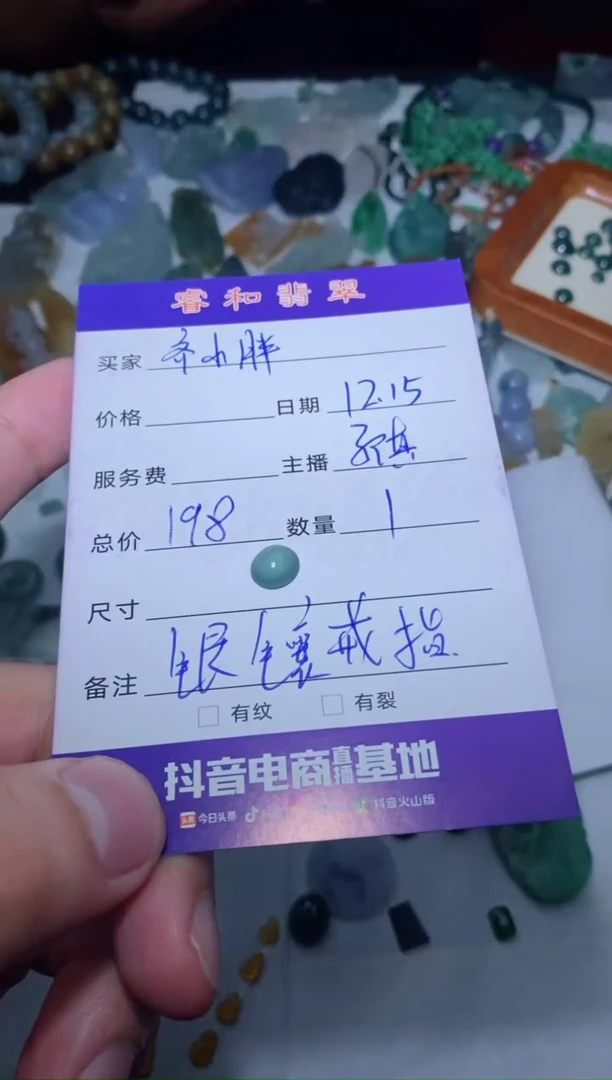 睿和翡翠
买家 齐小胖
价格 日期 12.15
服务费 主播
总价 198 数量 1
尺寸
备注 银镶戒指.
有纹 有裂
抖音电商直播基地
头条 今日头条 抖音火山版